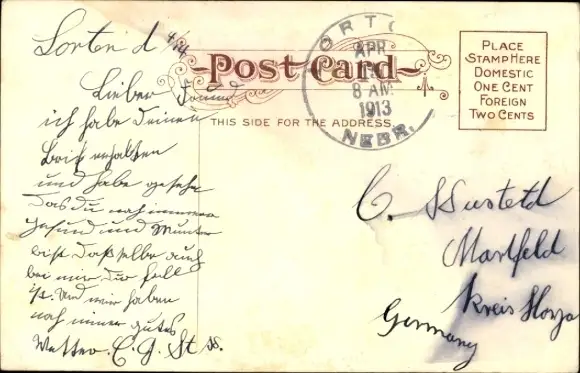 Lorton d 4/24
Lieber Freund
ich habe deinen
Brief erhalten
und habe gesehn
das du noch immer
gesund und Munter
bist. Dasselbe auch
bei mir der fall
ist. Und wir haben
noch immer gutes
Wetter. C. J. St
POST CARD
THIS SIDE FOR THE ADDRESS
ORTO
APR
8 AM
1913
NEBR.
PLACE
STAMP HERE
DOMESTIC
ONE CENT
FOREIGN
TWO CENTS
C. Wusteld
Martfeld
Kreis Hoya
Germany